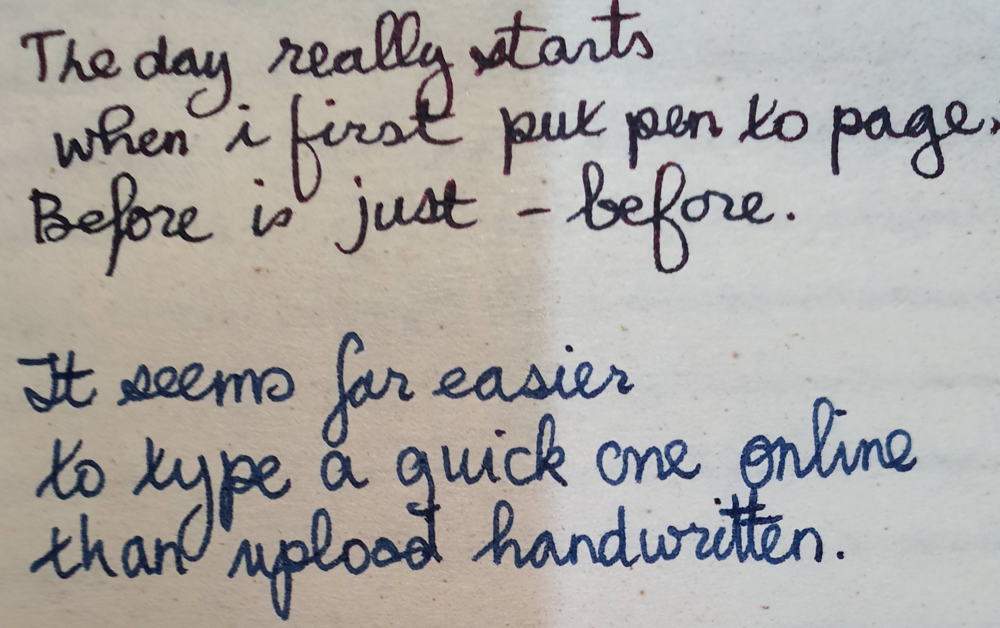 The day really starts
when i first put pen to page.
Before is just - before.
It seems far easier
to type a quick one online
than upload handwritten.